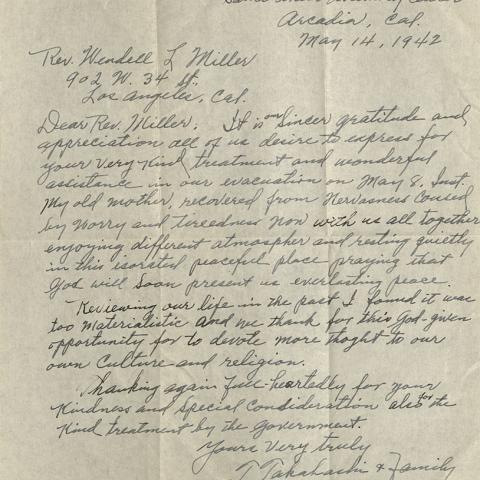 Santa Anita Assembly Center
Arcadia, Cal.
May 14, 1942
Rev. Wendell L Miller
902 W. 34 St.
Los Angeles, Cal.
Dear Rev. Miller: It is our Sincer gratitude and
appreciation all of us desire to express for
your very kind treatment and wonderful
assistance in our evacuation on May 8, Inst.
My old mother, recovered from Nervasness Coused
by Worry and tireedness Now with us all together
enjoying different atmospher and resting quietly
in this isorated peaceful place praying that
God will soon present us everlasting peace.
Reviewing our life in the past I found it was
too Materialistic and we thank for this God-given
opportunity for to devote more thoght to our
own Culture and religion.
Thanking again full-heartedly for your
Kindness and Special Consideration also for the
Kind treatment by the government.
Yours Very truly
T Takahashi & Family